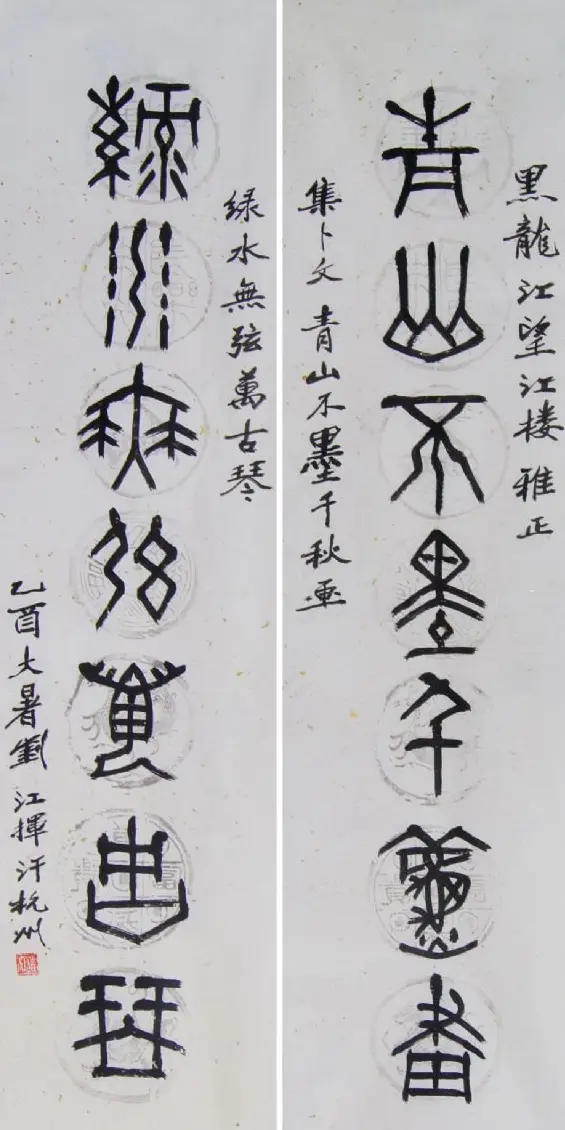 黑龍江望江楼雅正
青山不墨千秋畫
集卜文 青山不墨千秋画
绿水無弦萬古琴
綠水無弦萬古琴
乙酉大暑劉江揮汗杭州